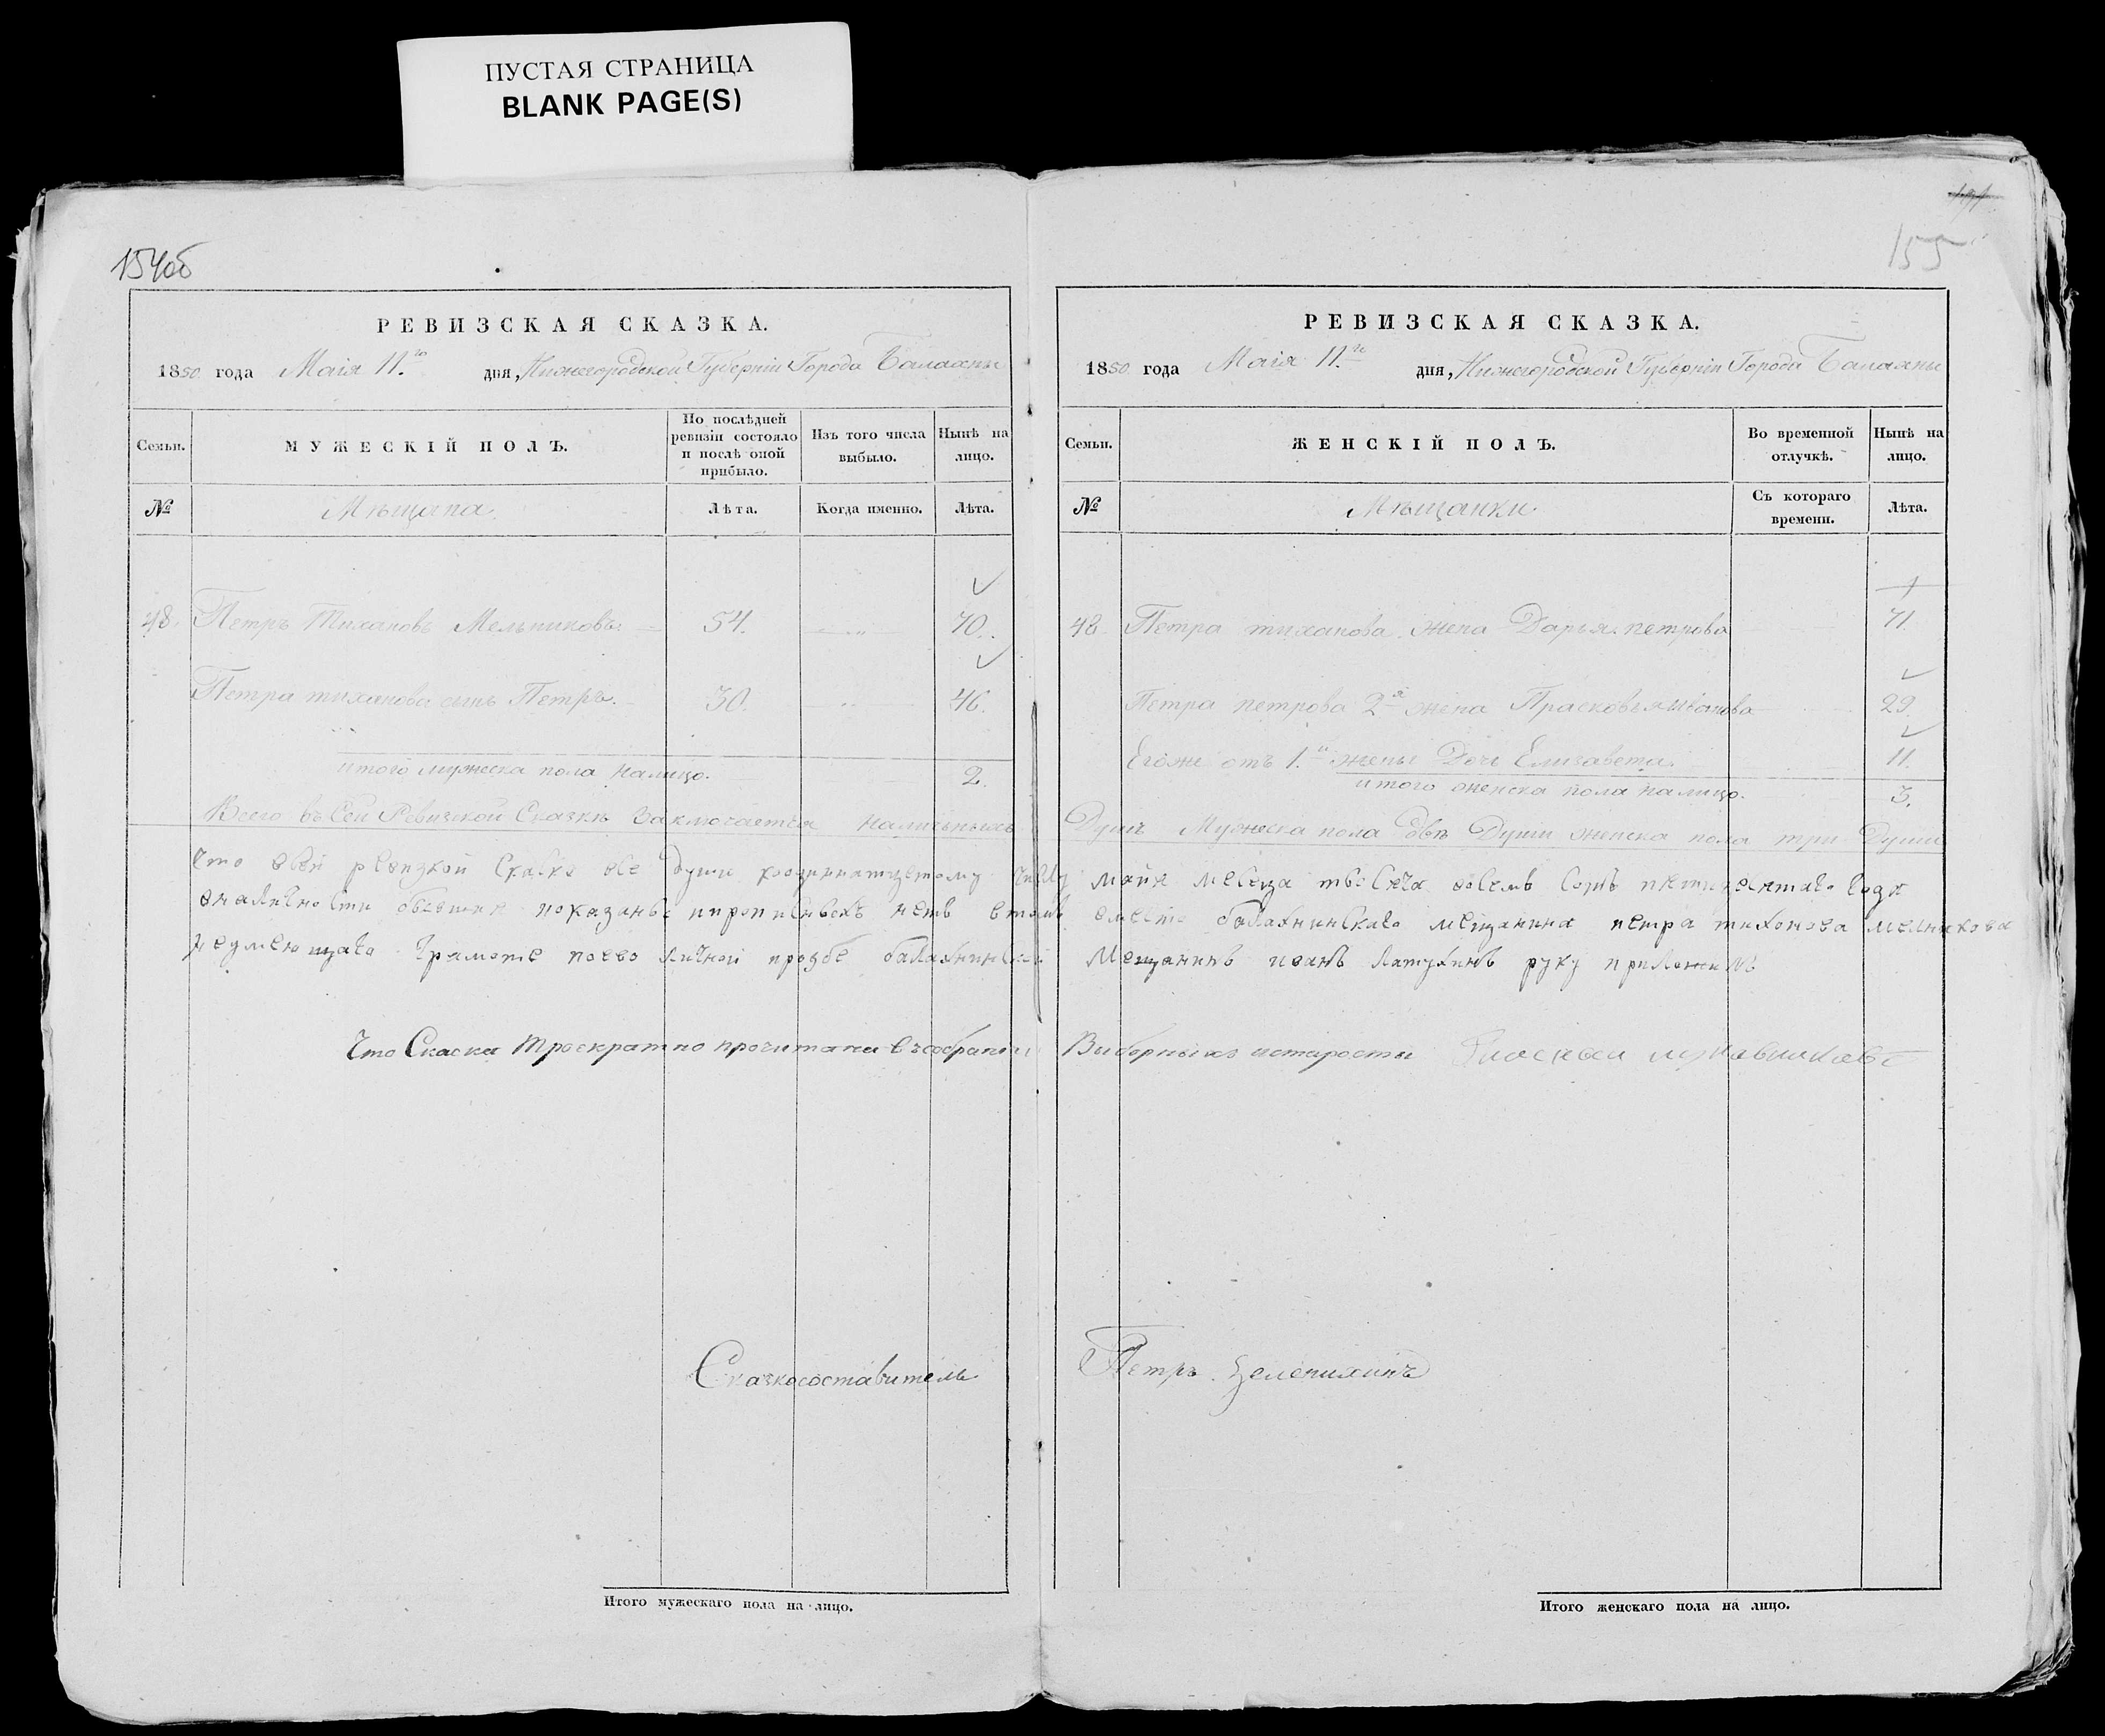 ПУСТАЯ СТРАНИЦА
BLANK PAGE(S)
154об
РЕВИЗСКАЯ СКАЗКА.
1850 года Маія 11.го дня, Нижегородской Губерніи Города Балахны
Семьи.
МУЖЕСКІЙ ПОЛЪ.
По послѣдней ревизіи состояло и послѣ оной прибыло.
Изъ того числа выбыло.
Нынѣ на лицо.
№
Мѣщана
Лѣта.
Когда именно.
Лѣта.
48. Петръ Тихановъ Мельниковъ. 54. „ 70.
Петра тиханова сынъ Петръ. 30. „ 46.
итого мужеска пола налицо. 2.
155
РЕВИЗСКАЯ СКАЗКА.
1850 года Маія 11.го дня, Нижегородской Губерніи Города Балахны
Семьи.
ЖЕНСКІЙ ПОЛЪ.
Во временной отлучкѣ.
Нынѣ на лицо.
№
Мѣщанки.
Съ котораго времени.
Лѣта.
48 Петра тиханова жена Дарья петрова 71.
Петра петрова 2я жена Прасковья иванова 29.
Егоже отъ 1.й жены Дочь Елизавета. 11.
итого женска пола налицо. 3.
Всего въ Сей Ревизской Сказкѣ Заключается наличныхъ Душъ Мужеска пола двѣ Души женска пола три Души
Что всей ревизкой Скаске все души кодиннатцетому числу майя месеца твсеча восемь сотъ пятидесятаго года
вналичности бывшия показаны ипрописныхъ нетъ втомъ вместо балахнинскаго мещанина петра тихонова мелникова
неумеющаго грамоте поево личной прозбе балахнинской Мещанинъ иванъ Латухинъ руку приложилъ
Что Скаска троекратно прочитана въ собрании Выборныхъ истаросты
Сказкосоставитель Петръ Зеленихинъ
Итого мужескаго пола на лицо.
Итого женскаго пола на лицо.